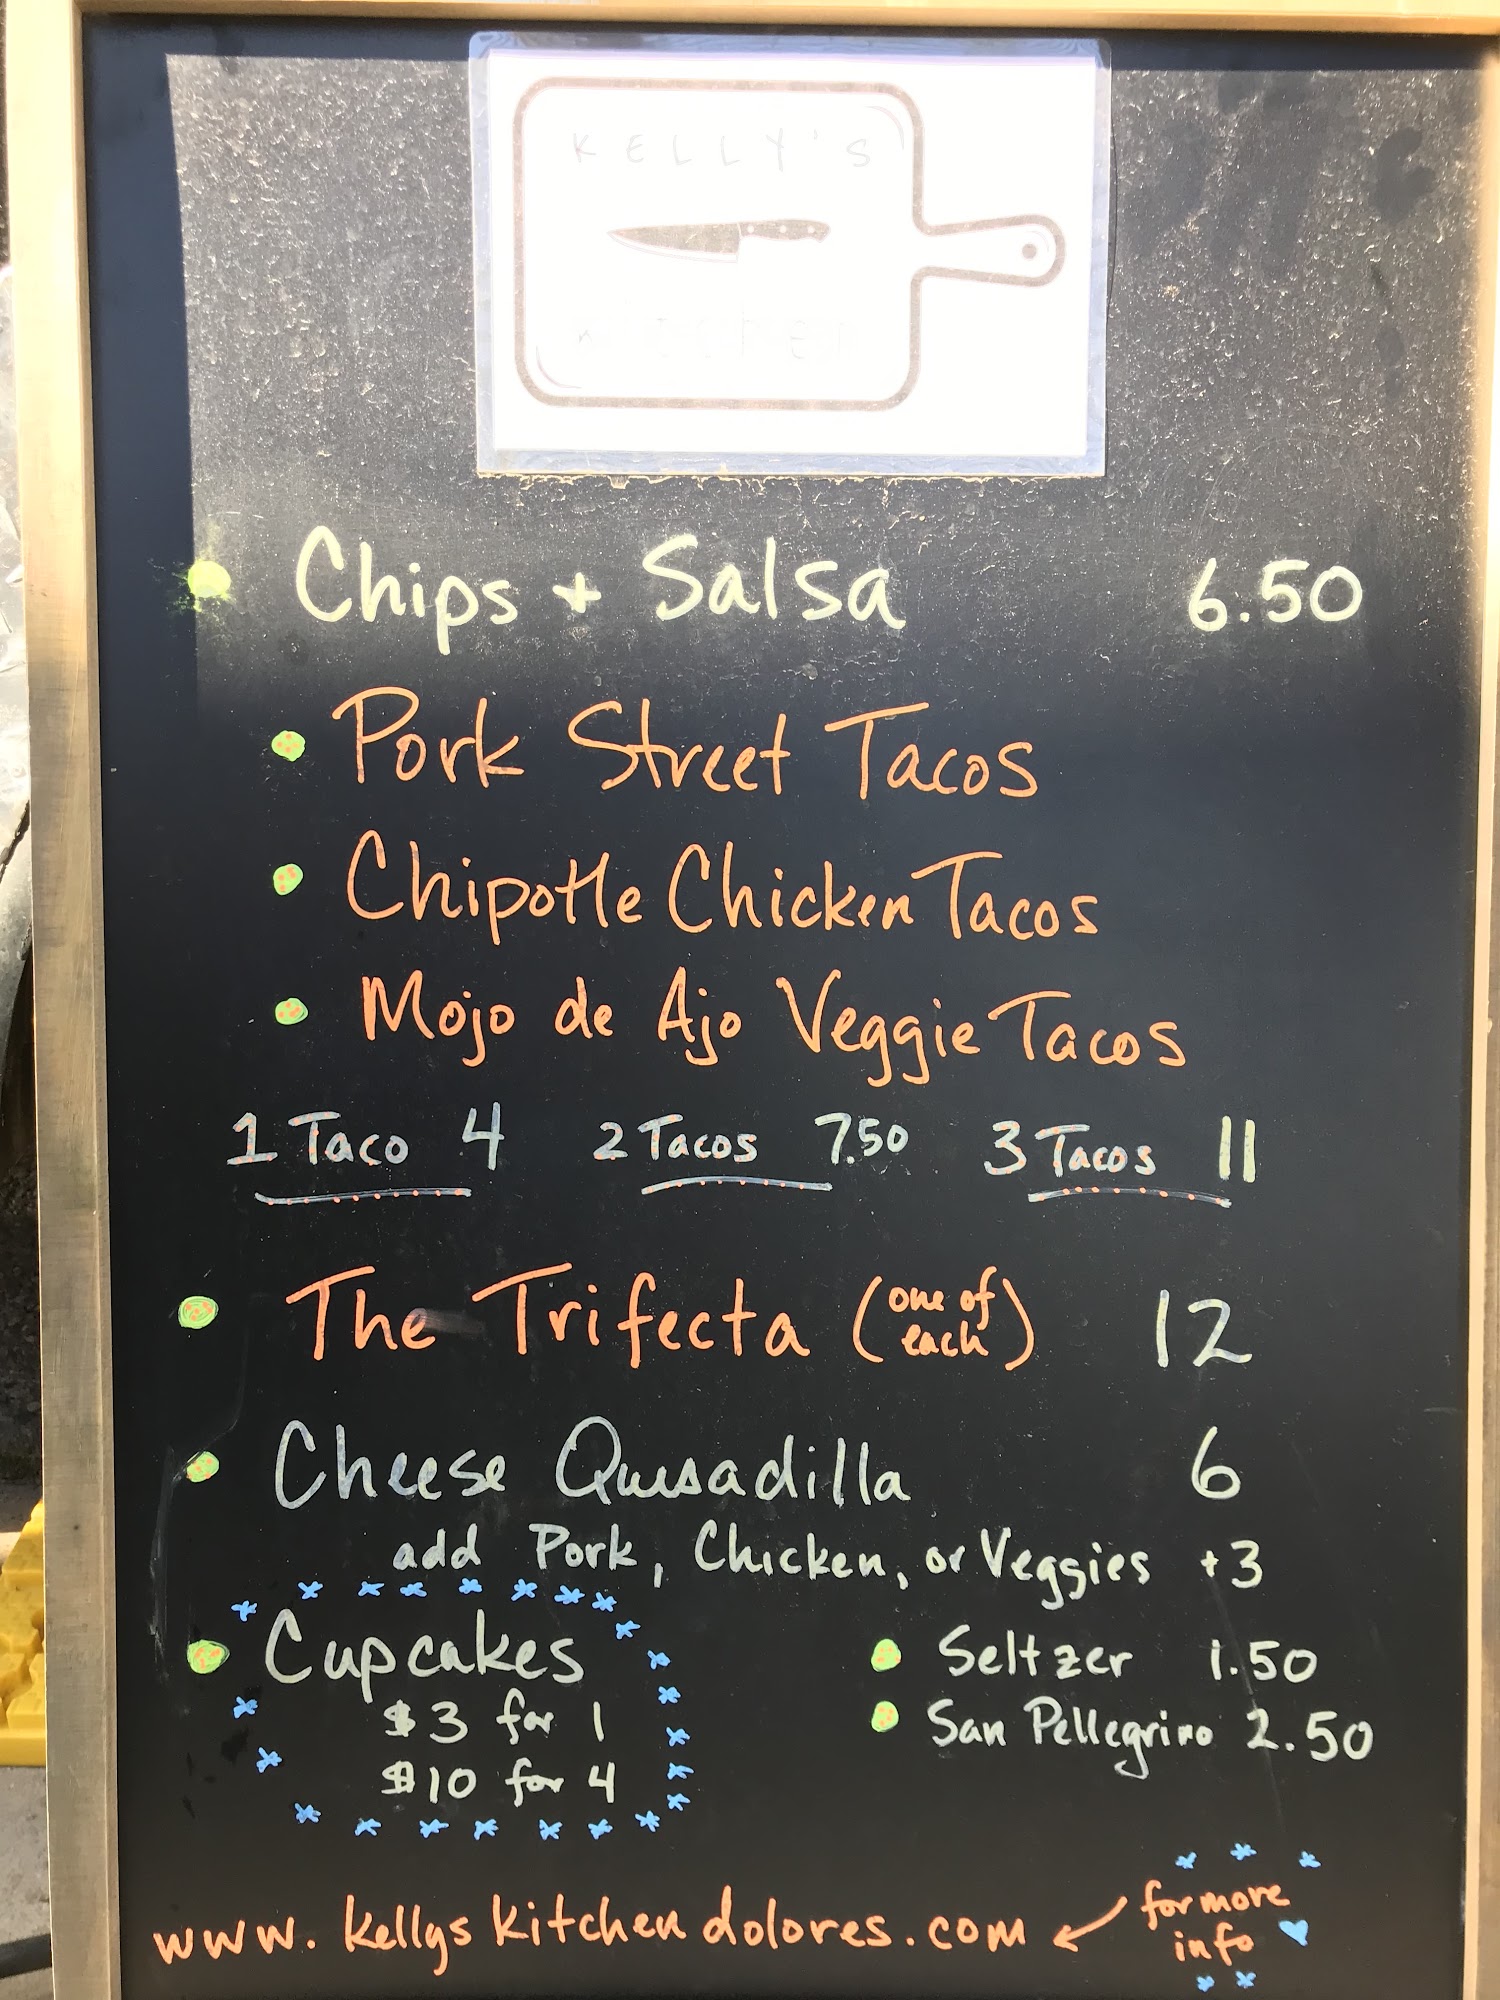 KELLY'S
KITCHEN
Chips + Salsa 6.50
Pork Street Tacos
Chipotle Chicken Tacos
Mojo de Ajo Veggie Tacos
1 Taco 4 2 Tacos 7.50 3 Tacos 11
The Trifecta (one of each) 12
Cheese Quesadilla 6
add Pork, Chicken, or Veggies +3
Cupcakes
$3 for 1
$10 for 4
Seltzer 1.50
San Pellegrino 2.50
www.kellyskitchendolores.com
for more
info